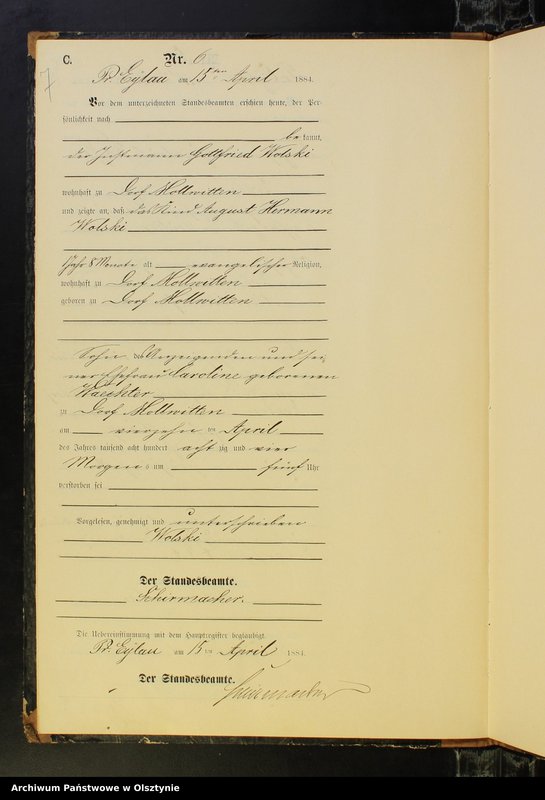 C.
Nr. 6
7
Pr. Eylau am 15ten April 1884.
Vor dem unterzeichneten Standesbeamten erschien heute, der Per-
sönlichkeit nach
be kannt,
der Instmann Gottfried Wolski
wohnhaft zu Dorf Mollwitten
und zeigte an, daß das Kind August Hermann
Wolski
1 Jahr 8 Monate alt evangelischer Religion,
wohnhaft zu Dorf Mollwitten
geboren zu Dorf Mollwitten
Sohn des Anzeigenden und sei-
ner Ehefrau Caroline geborenen
Waechter
zu Dorf Mollwitten
am vierzehn ten April
des Jahres tausend acht hundert acht zig und vier
Morgens um fünf Uhr
verstorben sei
Vorgelesen, genehmigt und unterschrieben
Wolski
Der Standesbeamte.
Schirmacher.
Die Uebereinstimmung mit dem Hauptregister beglaubigt.
Pr. Eylau am 15 ten April 1884.
Der Standesbeamte.
Schirmacher
Archiwum Państwowe w Olsztynie